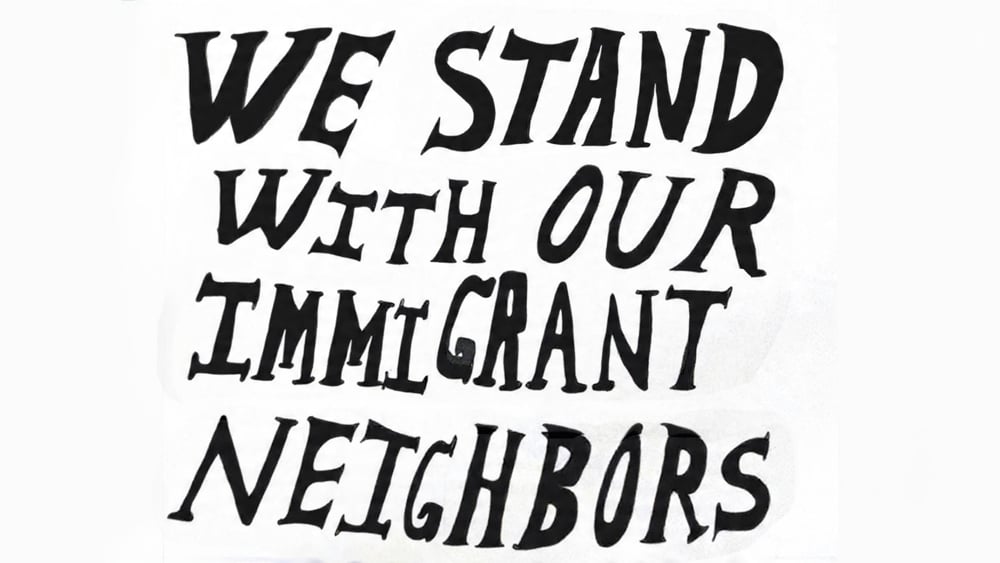 WE STAND
WITH OUR
IMMIGRANT
NEIGHBORS